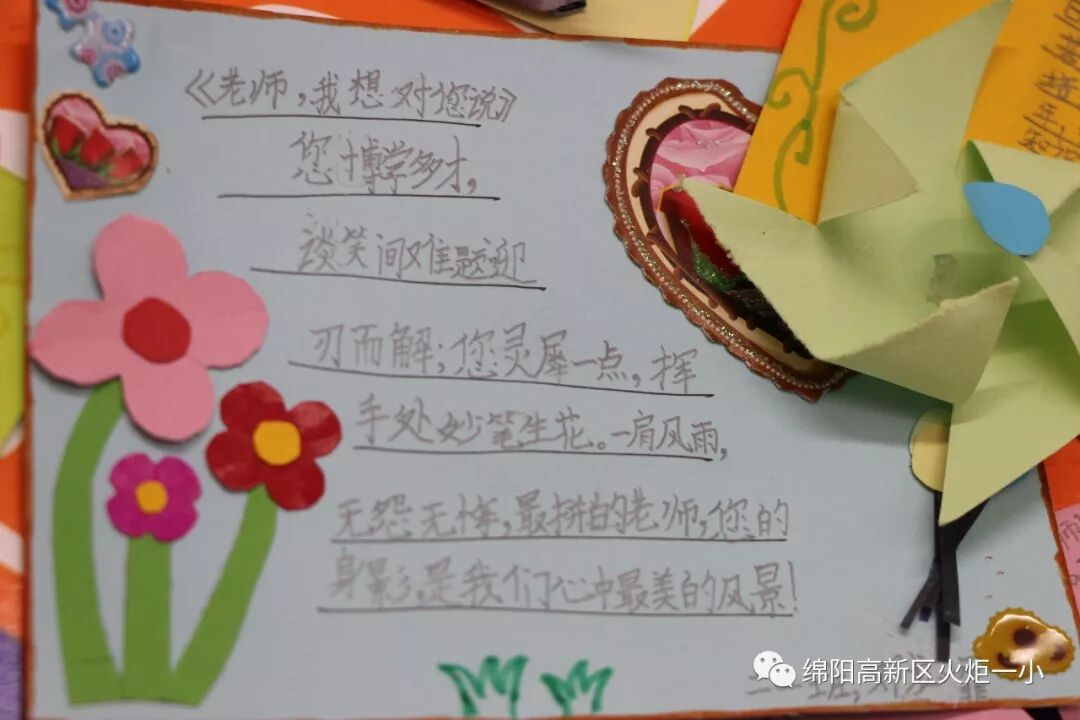 《老师,我想对您说》
您博学多才,
谈笑间难题迎
刃而解;您灵犀一点,挥
手处妙笔生花。一肩风雨,
无怨无悔,最拼的老师,您的
身影,是我们心中最美的风景!
绵阳高新区火炬一小